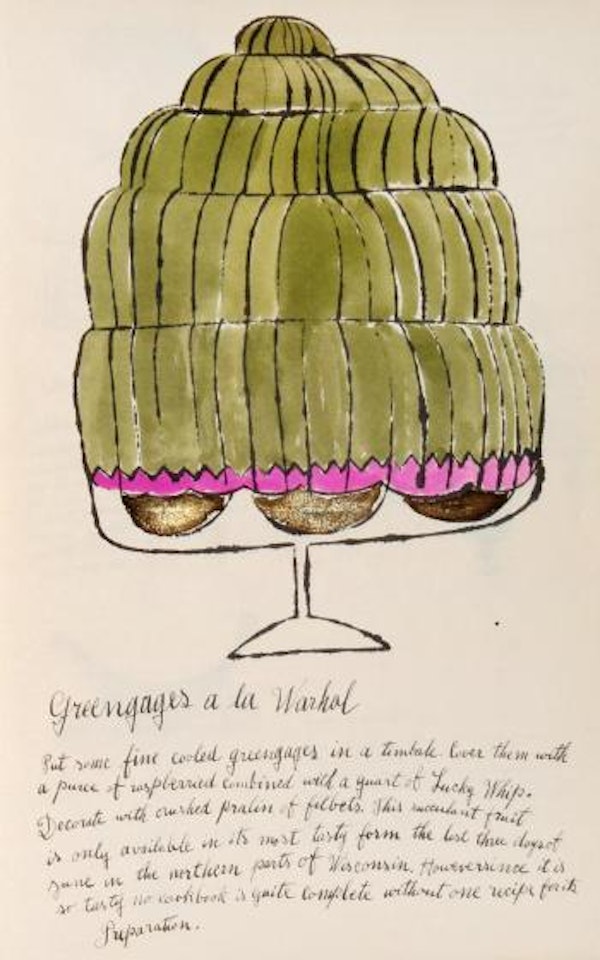 Greengages a la Warhol
Put some fine cooled greengages in a timbale. Cover them with
a puree of raspberried combined with a quart of Lucky Whip.
Decorate with crushed pralin of filberts. This succulent fruit
is only available in its most tasty form the last three days of
June in the northern parts of Wisconsin. Howeversince it is
so tasty no cookbook is quite complete without one recipe for its
Preparation.